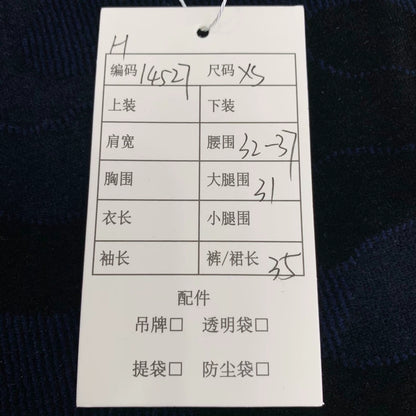 H
编码 14527 尺码 XS
上装 下装
肩宽 腰围 32-37
胸围 大腿围 31
衣长 小腿围
袖长 裤/裙长 35
配件
吊牌□ 透明袋□
提袋□ 防尘袋□